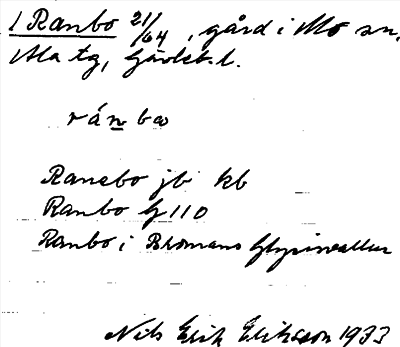 1 Ranbo 21/64, gård i Mo sn,
Ala tg, Gävleb. l.
ránbω
Ranebo jb kb
Ranbo G 110
Ranbo i Bromans Glysisvallur
Nils Erik Eriksson 1933